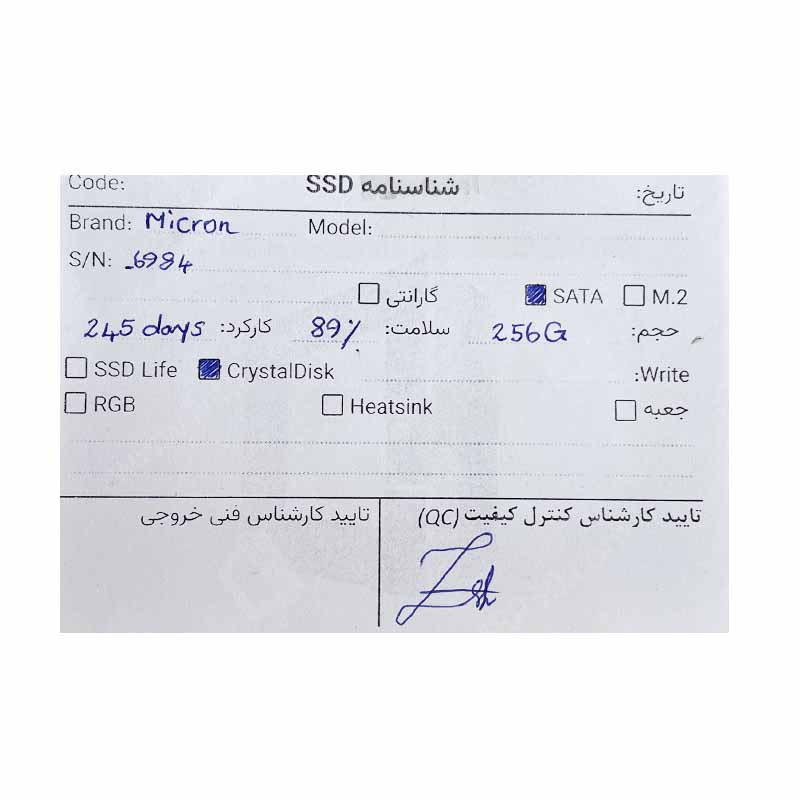 Code: شناسنامه SSD تاریخ:
Brand: Micron Model:
S/N: _6984
گارانتی SATA M.2
حجم: 256G سلامت: 89% کارکرد: 245 days
SSD Life CrystalDisk Write:
RGB Heatsink جعبه
تایید کارشناس کنترل کیفیت (QC) تایید کارشناس فنی خروجی